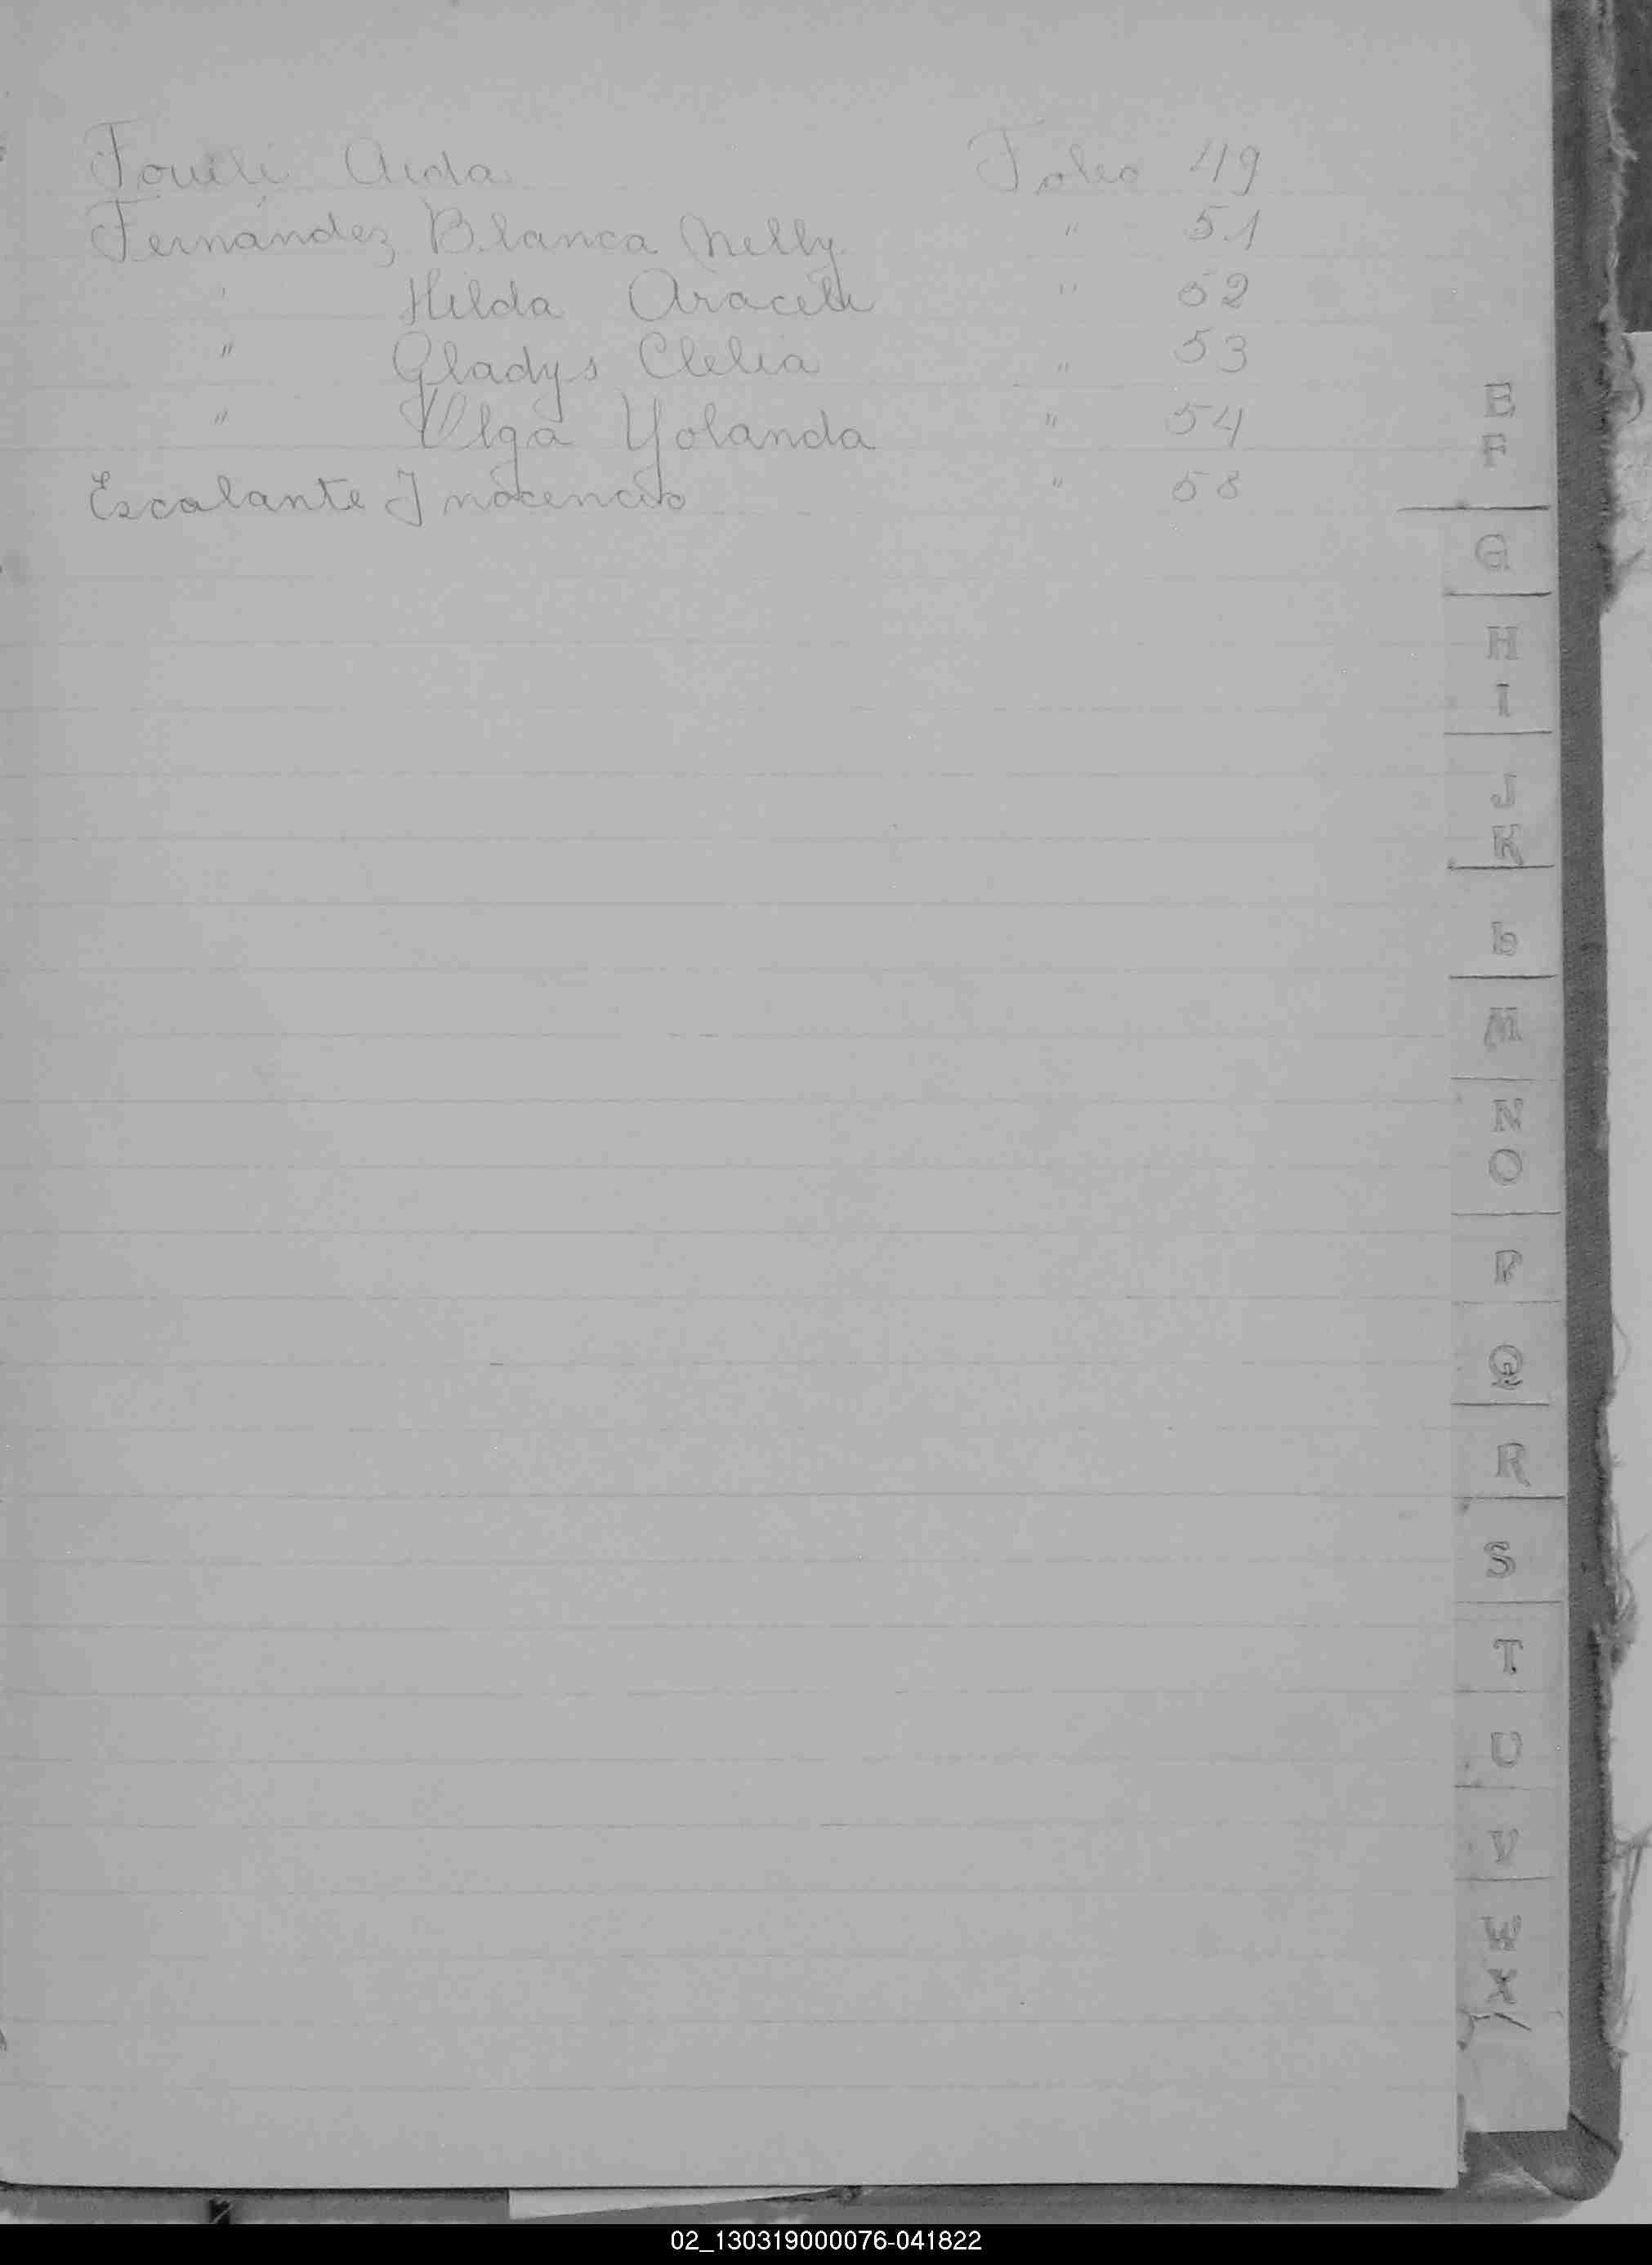 Aida Folio 49
Fernández Blanca Nelly " 51
" Hilda Araceli " 52
" Gladys Clelia " 53
" Olga Yolanda " 54
Escalante Inocencio " 58
E
F
G
H
I
J
K
L
M
N
O
P
Q
R
S
T
U
V
W
X
Y
02_130319000076-041822